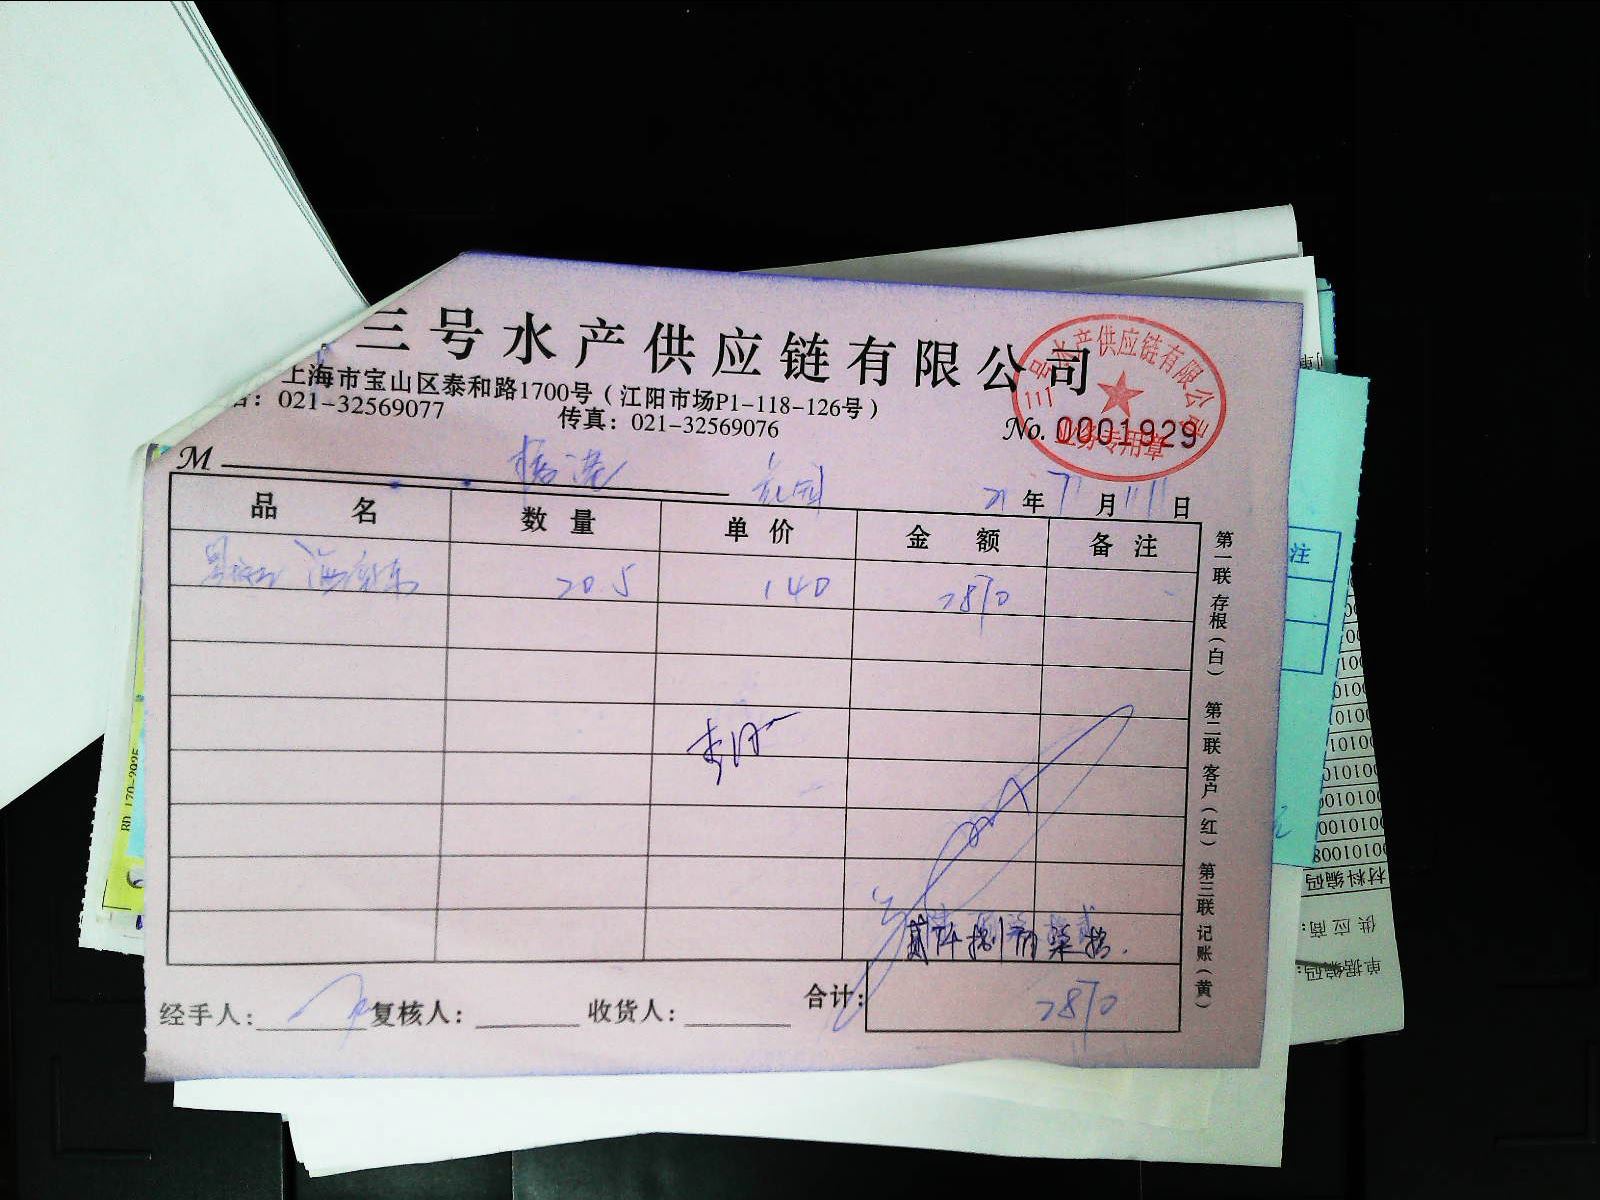 三号水产供应链有限公司
上海市宝山区泰和路1700号（江阳市场P1-118-126号）
021-32569077 传真：021-32569076
号水产供应链有限公司
业务专用章
No. 0001929
M
21年7月11日
品名 数量 单价 金额 备注
20.5 140 2870
贰仟捌佰柒拾
经手人： 复核人： 收货人： 合计： 2870
第一联 存根（白） 第二联 客户（红） 第三联 记账（黄）
注
RD 170-2025
材料编码
供应商：
单据编码：